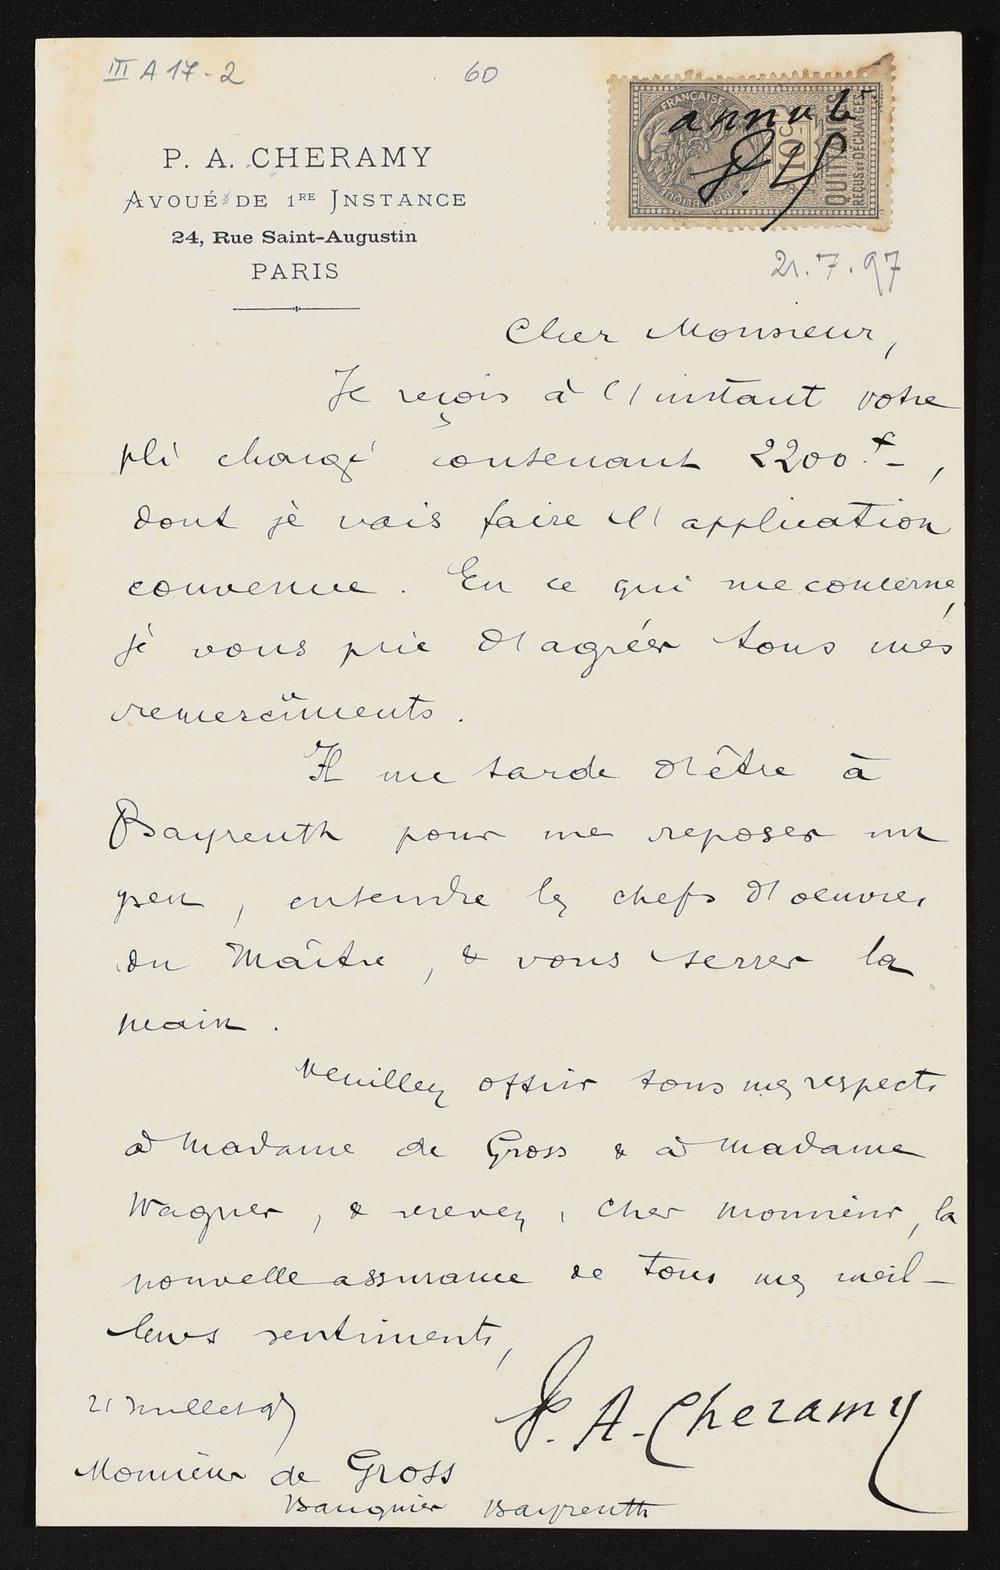 III A 17-2
60
P. A. CHERAMY
AVOUÉ DE 1RE INSTANCE
24, Rue Saint-Augustin
PARIS
FRANÇAISE
RÉPUBLIQUE
10c
QUITTANCES
REÇUS & DÉCHARGES
annulé
21.7.97
Cher Monsieur,
Je reçois à l'instant votre
pli chargé contenant 2200 f.,
dont je vais faire l'application
convenue. En ce qui me concerne,
je vous prie d'agréer tous mes
remerciments.
Il me tarde d'être à
Bayreuth pour me reposer un
peu, entendre les chefs d'oeuvres
du Maître, & vous serrer la
main.
Veuillez offrir tous mes respects
à Madame de Gross & à Madame
Wagner, & recevez, cher monsieur, la
nouvelle assurance de tous mes meil-
leurs sentiments,
21 Juillet 97
P. A. Cheramy
Monsieur de Gross
Banquier Bayreuth